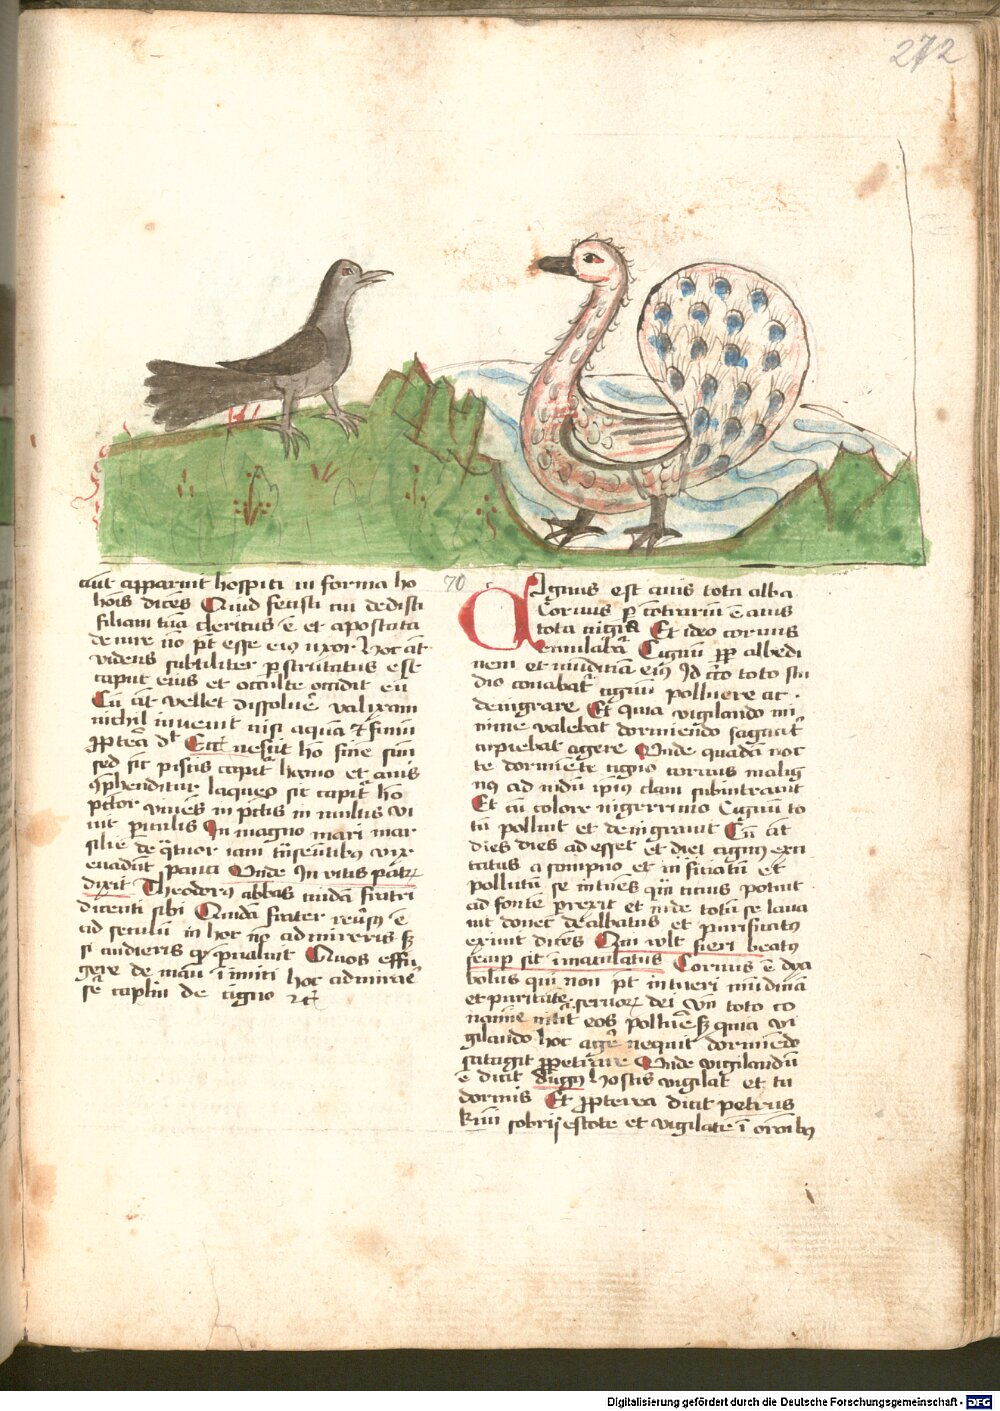 272
aut apparuit hospiti in forma ho
hōis dicēs Quid fecisti tu dedisti
filiam tuā clericus ē et apostata
de iure nō pt esse eiꝰ uxor hoc at
videns subtiliter pscrutatus est
caput eius et occulte occidit eū
Cū at vellet dissoluē
nichil invenit nisi aquā et fimū
ꝓpterea dr Ecce nescit ho finē suū
sed sic piscis capit hamo et avis
ꝯphenditur laqueo sic capit ho
pctor vivēs in pctis in multis vi
vit piculis In magno mari mar
silie de qtuor
evadūt pauci Unde In vitis patrꝫ
dixit Theodorꝰ abbas cuidā fratri
dicenti sibi Quidā frater reversꝰ ē
ad seculū in hoc nō admireris sꝫ
si audieris qꝫ pvaluit Quos effu
gere de manu inimici hoc admirare
sr caplm de cigno ⁊c̄
70
Cignus est avis tota alba
Corvus p contrariū ē avis
tota nigra Et ideo corvus
emulabat Cignū ꝓp albedi
nem et mundiciā eiꝰ Id crco toto stu
dio conabat cignū polluere ac
denigrare Et quia vigilando mi
nime valebat dormiendo sagacit
cupiebat agere Unde quadā noc
te dormiēte cigno corvus malig
nꝰ ad nidū ipiꝰ clam subintravit
Et cū colore nigerrimo Cignū to
tū polluit et denigravit Cū at
dies dies adesset et dict cignꝰ exci
tatus a sompno et
pollutū se intuēs qn cicius potuit
ad fontē prexit et inde totū se lava
vit donec dealbatus et purificatꝰ
exivit dicēs Qui vult fieri beatꝰ
semp sit īmaculatus Corvus ē dya
bolus qui non pt intueri mūdiciā
et puritatē servorꝫ dei Un toto co
namīe nitit eos polluē sꝫ quia vi
gilando hoc agē nequit dormiēdo
satagit ꝓpetrare Unde vigilandū
ē dicit Augꝰ hostis vigilat et tu
dormis Et ꝓpterea dicit petrus
kmi sobrij estote et vigilate ī oroībꝰ
Digitalisierung gefördert durch die Deutsche Forschungsgemeinschaft - DFG